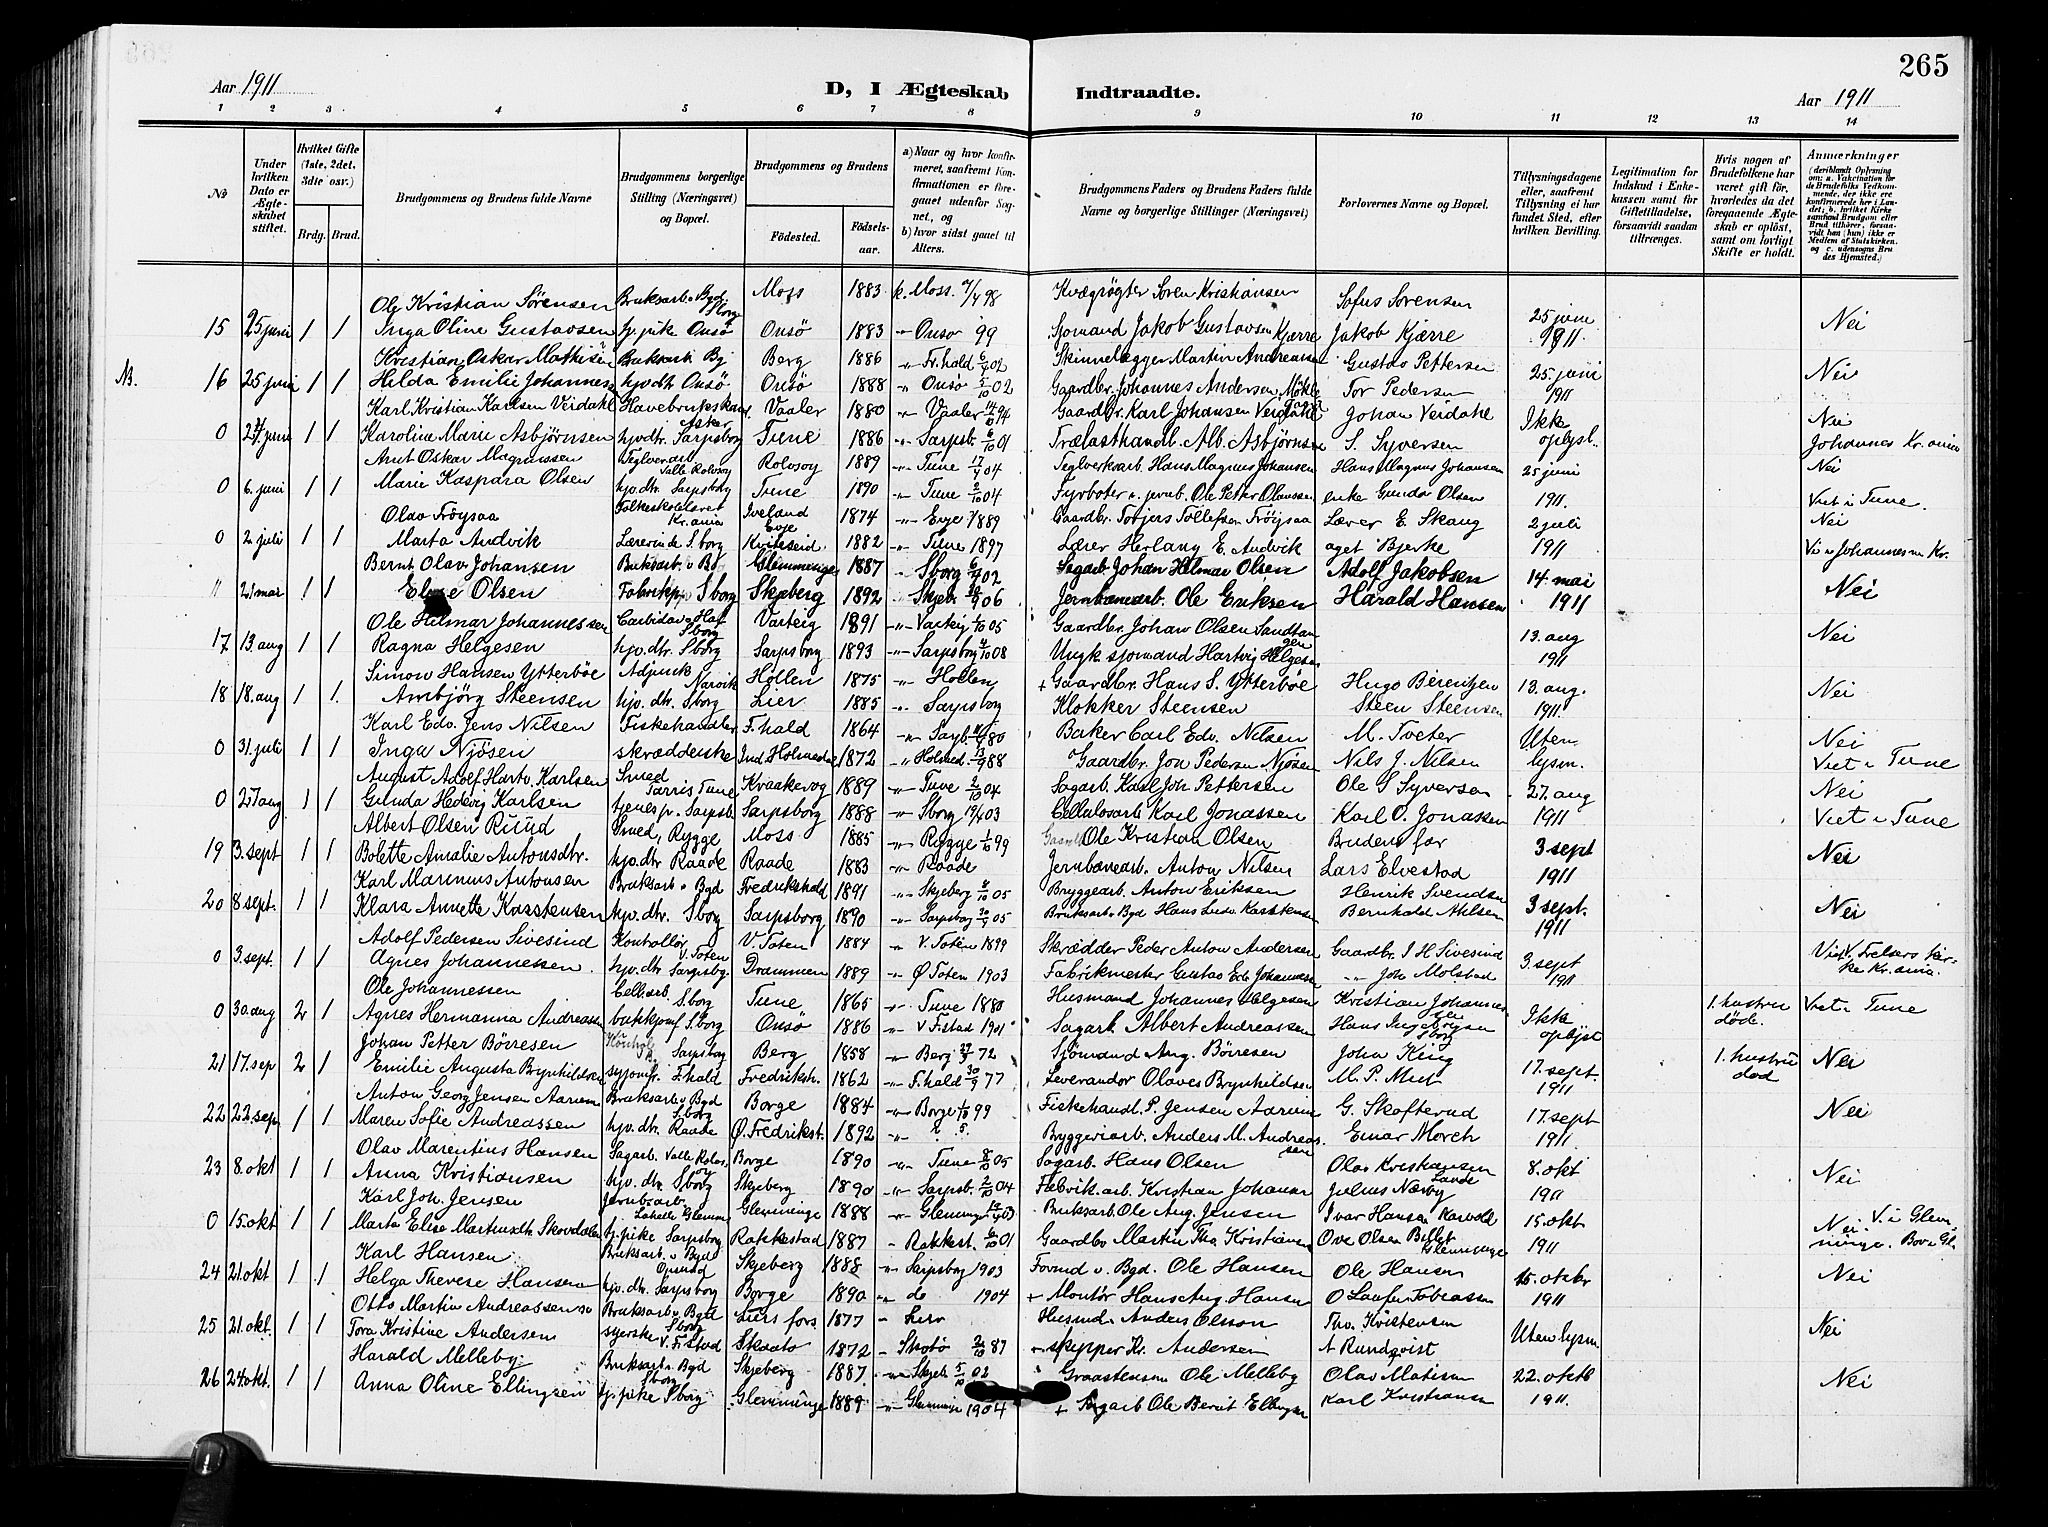 265
Aar 1911 D, I Ægteskab Indtraadte. Aar 1911
1 2 3 4 5 6 7 8 9 10 11 12 13 14
No
Under hvilken Dato er Ægteskabet stiftet.
Hvilket Gifte (1ste, 2det, 3die osv.)
Brdg. Brud.
Brudgommens og Brudens fulde Navne
Brudgommens borgerlige Stilling (Næringsvei) og Bopæl.
Brudgommens og Brudens
Fødested. Fødselsaar.
a) Naar og hvor konfirmeret, saafremt Konfirmationen er foregaaet udenfor Sognet, og
b) hvor sidst gaaet til Alters.
Brudgommens Faders og Brudens Faders fulde Navne og borgerlige Stillinger (Næringsvei)
Forlovernes Navne og Bopæl.
Tillysningsdagene eller, saafremt Tillysning ei har fundet Sted, efter hvilken Bevilling.
Legitimation for Indskud i Enkekassen samt for Giftetilladelse, forsaavidt saadan tiltrænges.
Hvis nogen af Brudefolkene har været gift før, hvorledes da det foregaaende Ægteskab er opløst, samt om lovligt Skifte er holdt.
Anmærkninger (deriblandt Oplysning om: a. Vakcination for de Brudefolks Vedkommende, der ikke ere konfirmerede her i Landet; b. hvilket Kirkesamfund Brudgom eller Brud tilhører, forsaavidt han (hun) ikke er Medlem af Statskirken, og c. udensogns Brudes Hjemsted.)
Ole Kristian Sørensen Bruksarb. v. Bgd. Sborg Moss 1883 k. Moss 98 Kvægrøgter Søren Kristiansen Sofus Sørensen
15 25 juni 1 1 Inga Oline Gustavsen tj. pike Onsø Onsø 1883 " Onsø 99 Sjømand Jakob Gustavsen Kjærre Jakob Kjærre 25 juni 1911 Nei
Kristian Oskar Mathisen Bruksarb. Berg 1886 " Fr.hald 02 Skinnelægger Martin Andreassen Gustav Pettersen
16 25 juni 1 1 Hilda Emilie Johannesen hjv. dtr. Onsø Onsø 1888 " Onsø 02 Gaardbr. Johannes Andersen, Møkle Tor Pedersen 25. juni 1911 Nei
Karl Kristian Karlsen Veidahl Asker Vaaler 1880 " Vaaler 94 Gaardbr. Karl Johansen Veidahl Johan Veidahl
0 24 juni 1 1 Karoline Marie Asbjørnsen hjv. dtr. Sarpsborg Tune 1886 " Sarpsb. 01 Trælasthandl. Alb. Asbjørnsen S. Syversen Ikke oplyst. Nei Johannes Kr. ania
Arnt Oskar Magnussen Teglverarb. Valle Rolvsøy Rolvsøy 1889 " Tune 04 Teglverksarb. Hans Magnus Johansen Hans Magnus Johansen
0 6. juni 1 1 Marie Kaspara Olsen hjv. dtr. Sarpsborg Tune 1890 " Tune 04 Fyrbøter Ole Petter Olaussen enke Gunda Olsen 25 juni 1911. Nei Viet i Tune.
Olav Frøysaa Folkeskolelærer Kr. ania Iveland Evje 1874 " Evje 1889 Gaardbr. Torjers Tollefsen Frøysaa Lærer E. Skaug
0 2 juli 1 1 Marta Andvik Lærerinde Sborg Kviteseid 1882 " Tune 1897 Lærer Herlaug E. Andvik aget Bjerke 2 juli 1911 Nei Vi i Johannes Kr.
Bernt Olav Johansen Bruksarb. v. Bo Glemminge 1887 " Sborg 02 Sagarb. Johan Helmar Olsen Adolf Jakobsen
" 21 mar 1 1 Olsen Sborg Skjeberg 1892 " Skjeb. 06 Jernbanearb. Ole Eriksen Harald Hansen 14. mai 1911 Nei
Ole Helmar Johannessen Carbidarb. Sborg Varteig 1891 " Varteig 05 Gaardbr. Johan Olsen Sandtangen
17 13. aug 1 1 Ragna Helgesen hjv. dtr. Sborg Sarpsborg 1893 " Sarpsborg 08 Ungk. sjømand Hartvig Helgesen 13. aug 1911 Nei
Simon Hansen Ytterbøe Adjunk Narvik Hollen 1875 " Hollen + Gaardbr. Hans S. Ytterbøe Hugo Berentzen
18 18. aug 1 1. Ambjørg Steensen hjv. dtr. Sborg Lier 1885 " Sarpsborg Klokker Steensen Steen Steensen 13. aug. 1911. Nei
Karl Edv. Jens Nilsen Fiskehandler F.hald 1864 " Sarpb. 80 Baker Carl Edv. Nilsen M. Tveter
0 31. juli 1 1 Inga Njøsen skrædderske Ind. Holmedal 1872 " Holmed. 88 Gaardbr. Jon Pedersen Njøsen Nils J. Nilsen Uten lysn. Nei Viet i Tune
August Adolf Hartv. Karlsen Smed Tarris Tune Kraakerøy 1889 " Tune 04 Sagarb. Karl Joh Pettersen Ole S Syversen
0 27 aug 1 1 Gunda Hedevig Karlsen tjenes p. Sarpsb. Sarpsborg 1888 " Sborg 03 Cellulosearb. Karl Jonassen Karl O. Jonassen 27. aug 1911 Nei Viet i Tune
Albert Olsen Ruud Smed, Rygge Moss 1885 " Rygge 99 Ole Kristian Olsen Brudens far
19 3. sept 1 1 Bolette Amalie Antonsdtr. hjv. dtr Raade Raade 1883 " Raade Jernbanearb. Anton Nilsen Lars Elvestad 3 sept 1911 Nei
Karl Marinius Antonsen Bruksarb. v. Bgd Fredrikshald 1891 " Skjeberg 05 Bryggearb. Anton Eriksen Henrik Svendsen
20 8 sept. 1 1 Klara Annette Karstensen hjv. dtr. Sborg Sarpsborg 1890 " Sarpsborg 05 Bruksarb. v. Bgd Hans Ludv. Karstensen Bernhald Nilsen 3 sept. 1911 Nei
Adolf Pedersen Sivesind Kontrollør V. Toten V. Toten 1884 " V. Toten 1899 Skrædder Peder Anton Andersen Gaardbr. I H Sivesind
0 3. sept. 1 1 Agnes Johannessen hjv. dtr Sarpsbg. Drammen 1889 " Ø Toten 1903 Fabrikmester Gustav Edv. Johannessen " Joh Molstad 3. sept 1911 Viet i Frelsers kirke Kr. ania.
Ole Johannessen Cell.arb. Sborg Tune 1865 " Tune 1880 Husmand Johannes Helgesen Kristian Johannessen
0 30. aug 2 1 Agnes Hermanna Andreassen butikjomf. Sborg Onsø 1886 " V F.stad 1901 Sagarb. Albert Andreassen Hans Ingebrigtsen Sborg Ikke oplyst 1. hustru død. Viet i Tune
Johan Petter Børresen Sarpsborg Berg 1858 " Berg 72 Sjømand Aug. Børresen John King
21 17. sep 2 1 Emilie Augusta Brynhildsen syjomfr. F.hald Fredriksh. 1862 " F.hald 77 Leverandør Olaves Brynhildsen M. P. 17. sept. 1911 1. hustru død Nei
Anton Georg Jensen Aarum Bruksarb. v Bgd Sborg Borge 1884 " Borge 99 Fiskehandl. P. Jensen Aarum G. Skofterud
22 22 sep. 1 1 Maren Sofie Andreassen hjv. dtr. Raade Ø. Fredrikst. 1892 " ? Bryggeriarb. Anders M. Andreassen Einar Morch 17. sept 1911 Nei
Olav Marentius Hansen Sagarb. Valle Rolvsøy Borge 1890 " Tune 05 Sagarb. Hans Olsen Olav Kristiansen
23 8. okt 1 1 Anna Kristiansen hjv. dtr. Sborg Skjeberg 1890 " Sarpsb. 04 Fabrik.arb. Kristian Johansen Julius Nærby 8. okt 1911 Nei
Karl Joh. Jensen Jernb.arb. Glemminge 1888 " Glemminge 03 Bruksarb. Ole Aug. Jensen Ivar Hansen Karvold
0 15. okt 1 1 Marta Elise Martinsdtr. Skovdalen tj. pike Sarpsborg Rakkestad 1887 " Rakkest. 01 Martin Kristiansen Ove Olsen Glemminge 15. okt 1911 Nei V. i Glemminge.
Karl Hansen Bruksarb. v Bgd Opsund Skjeberg 1888 " Sarpsborg 1903 Formd v. Bgd. Ole Hansen Ole Hansen
24 21. okt 1 1 Helga Therese Hansen hjv. dtr. Sarpsborg Borge 1890 " do 1904 + Montør Hans Aug. Hansen O Laufer Tobiassen 15. oktbr 1911 Nei
Otto Martin Andreassen Bruksarb. v Bgd Sborg Liers fors. 1877 " Lier Husmd. Anders Olsson Tho. Kristensen
25 21. okt. 1 1 Tora Kristine Andersen syerske V. F.stad Skaatø 1872 " Skotø 87 skipper Kr. Andersen A Rundqvist Uten lysn. Nei
Harald Melleby Bruksarb v. Bgd Sborg Skjeberg 1887. " Skjeb 02 Graastensm Ole Melleby Olav Matisen
26 24 okt. 1 1 Anna Oline Ellingsen tj. pike Sborg Glemminge 1889 " Glemminge 1904 + Sagarb Ole Berut Ellingsen Karl Kristiansen 22. oktb 1911. Nei